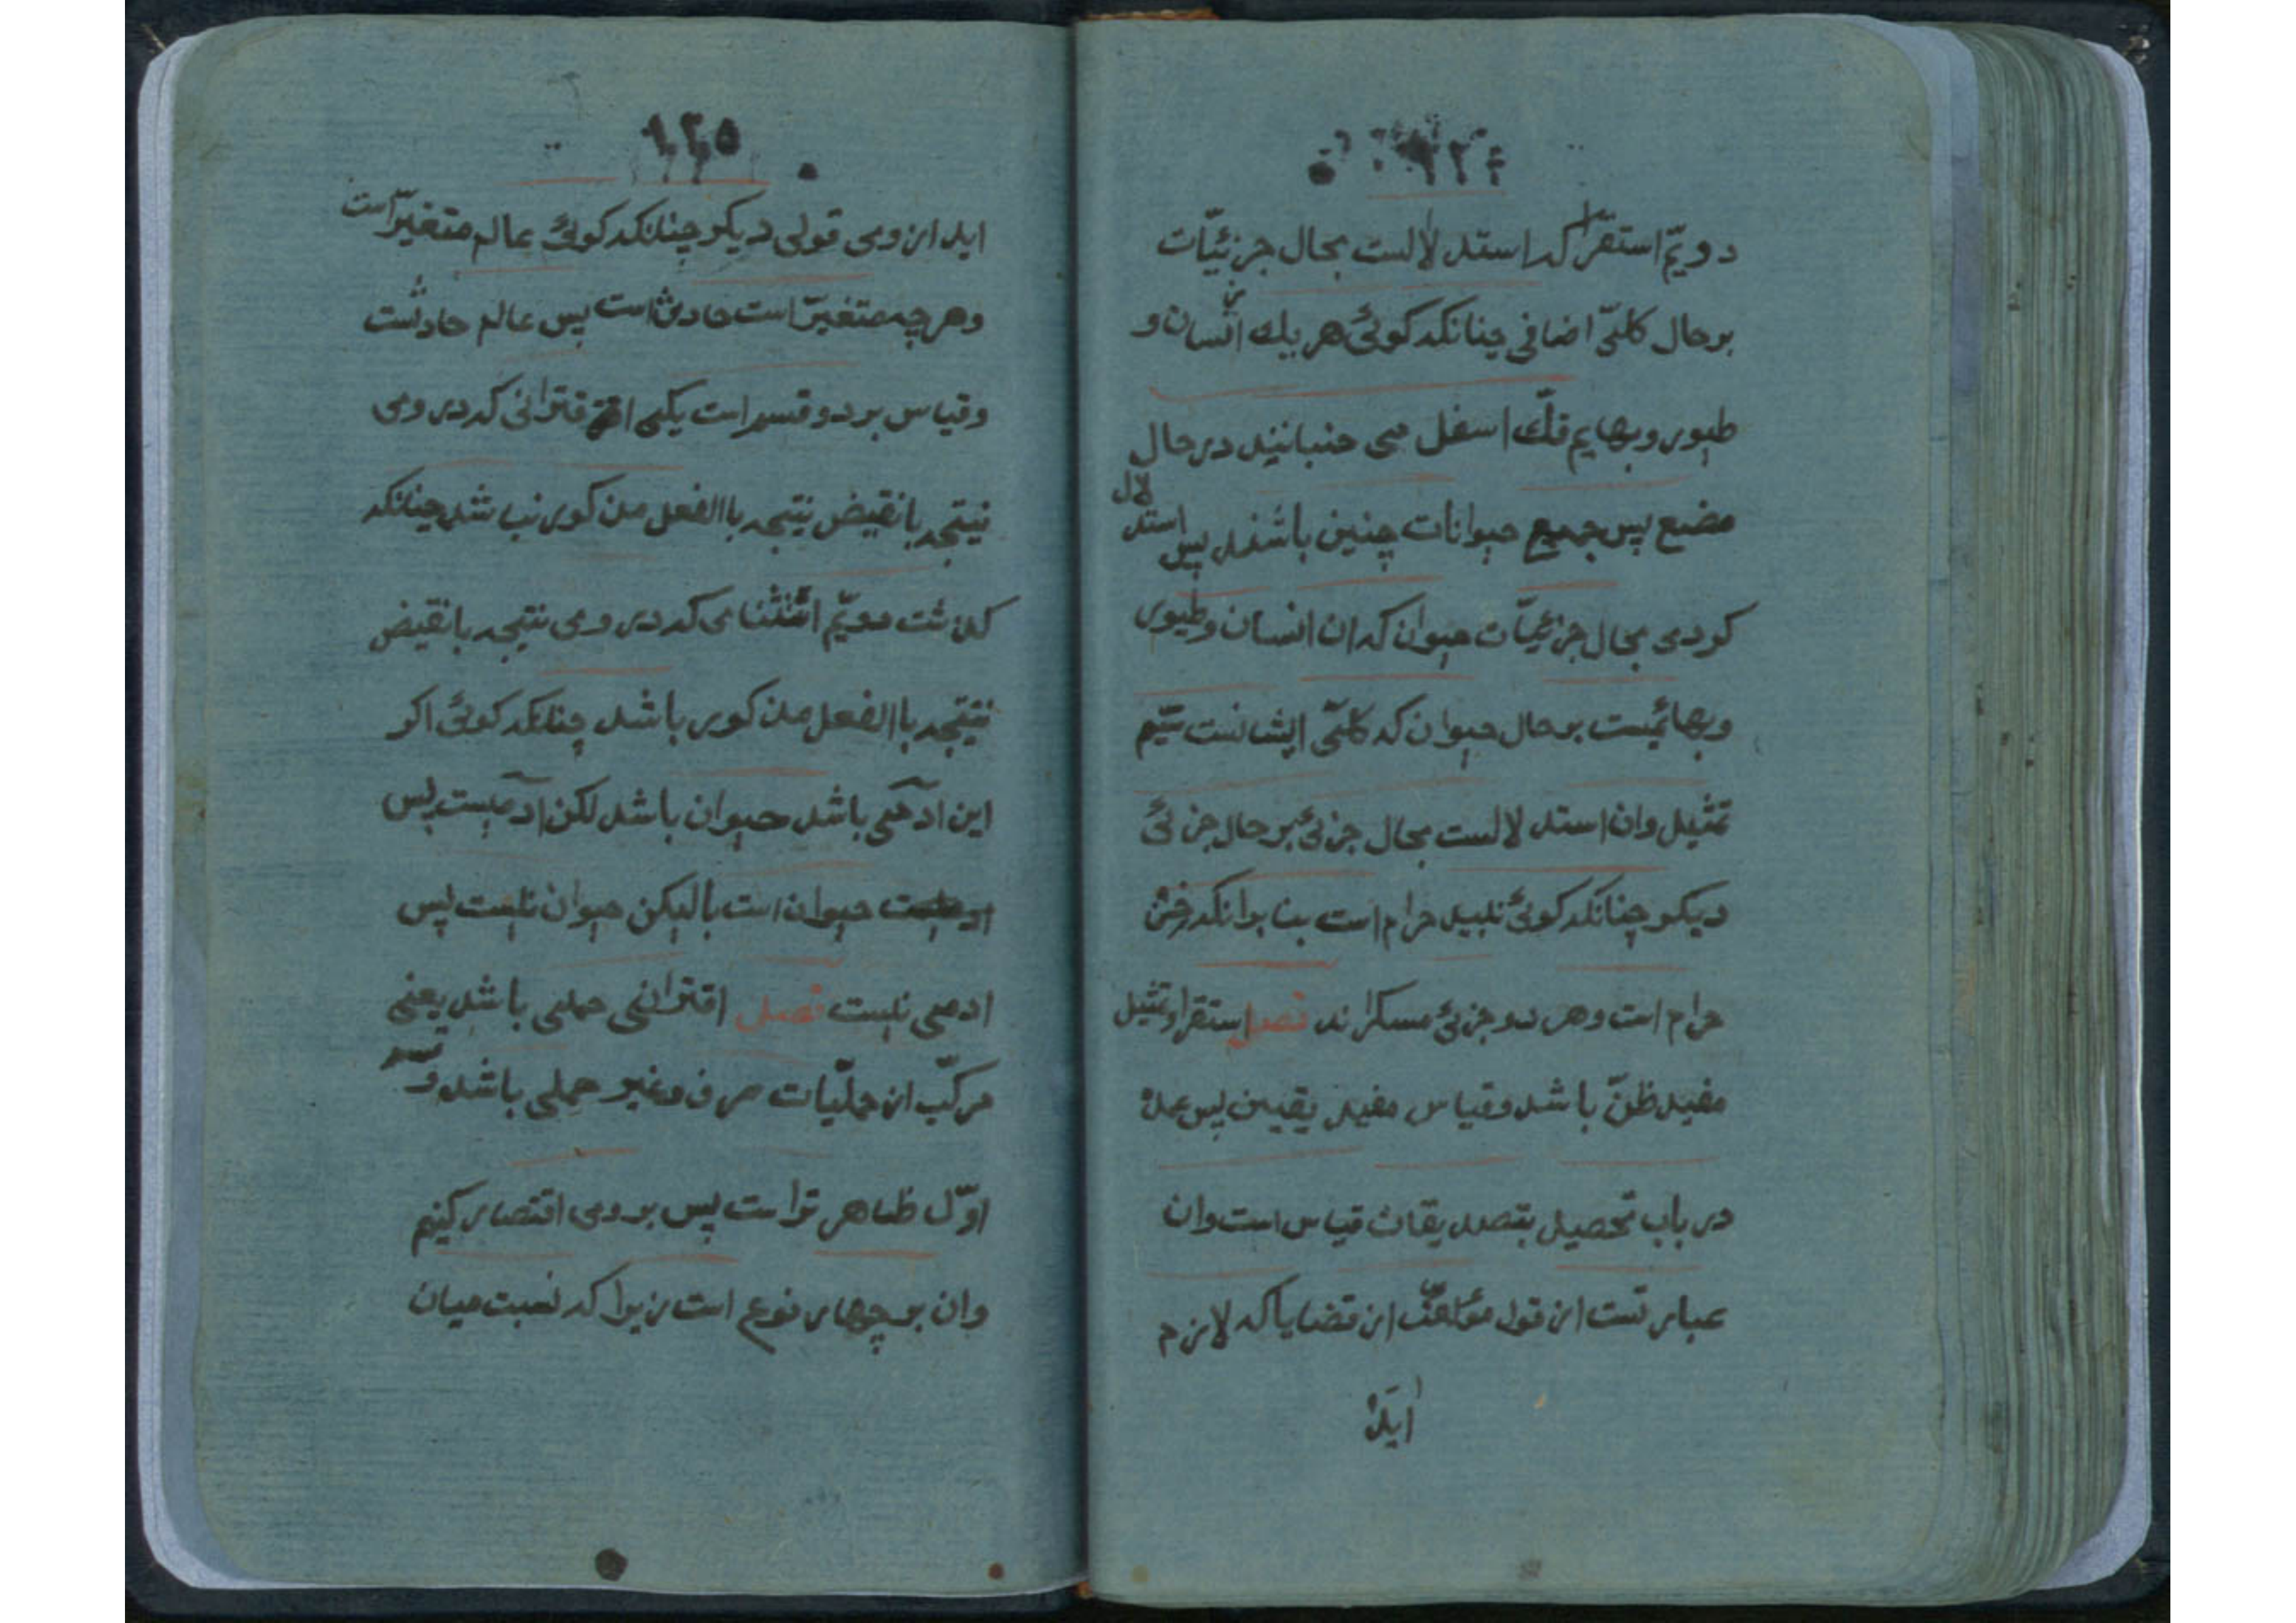 ١٢٤
دويّم استقرا كه استدلالست بحال جزئيّات
بر حال كلّى اضافى چنانكه كوئى هر يك از انسان و
طيور و بهايم فكّ اسفل مى جنبانيند در حال
مضع پس جميع حيوانات چنين باشند پس استدلال
كردى بحال جزئيّات حيوان كه ان انسان و طيور
و بهائميست بر حال حيوان كه كلّى ايشانست سيّم
تمثيل و ان استدلالست بحال جزئى بر حال جزئى
ديكر چنانكه كوئى نبيد حرام است بنا بر انكه خمر
حرام است و هر دو جزئى مسكراند فصل استقرا و تمثيل
مفيد ظنّ باشد و قياس مفيد يقين پس عمده
در باب تحصيل بتصديقات قياس است و ان
عبارتست از قول مؤلّف از قضايا كه لازم
ايد
١٢٥
ايد از وى قولى ديكر چنانكه كوئى عالم متغيّر است
و هرچه متغيّر است حادث است پس عالم حادثست
و قياس بر دو قسم است يكى اقترانى كه در وى
نيتجه يا نقيض نيتجه باالفعل مذكور نباشد چنانكه
كذشت دويّم استثنائى كه در وى نتيجه يا نقيض
نيتجه باالفعل مذكور باشد چنانكه كوئى اكر
اين ادمى باشد حيوان باشد لكن ادميست پس
حيوان است يا ليكن حيوان نيست پس
ادمى نيست فصل اقترانى حملى باشد يعنى
مركّب از حمليّات صرف و غير حملى باشد و
اوّل ظاهر تر است پس بر وى اقتصار كنيم
و ان بر چهار نوع است زيرا كه نسبت ميان